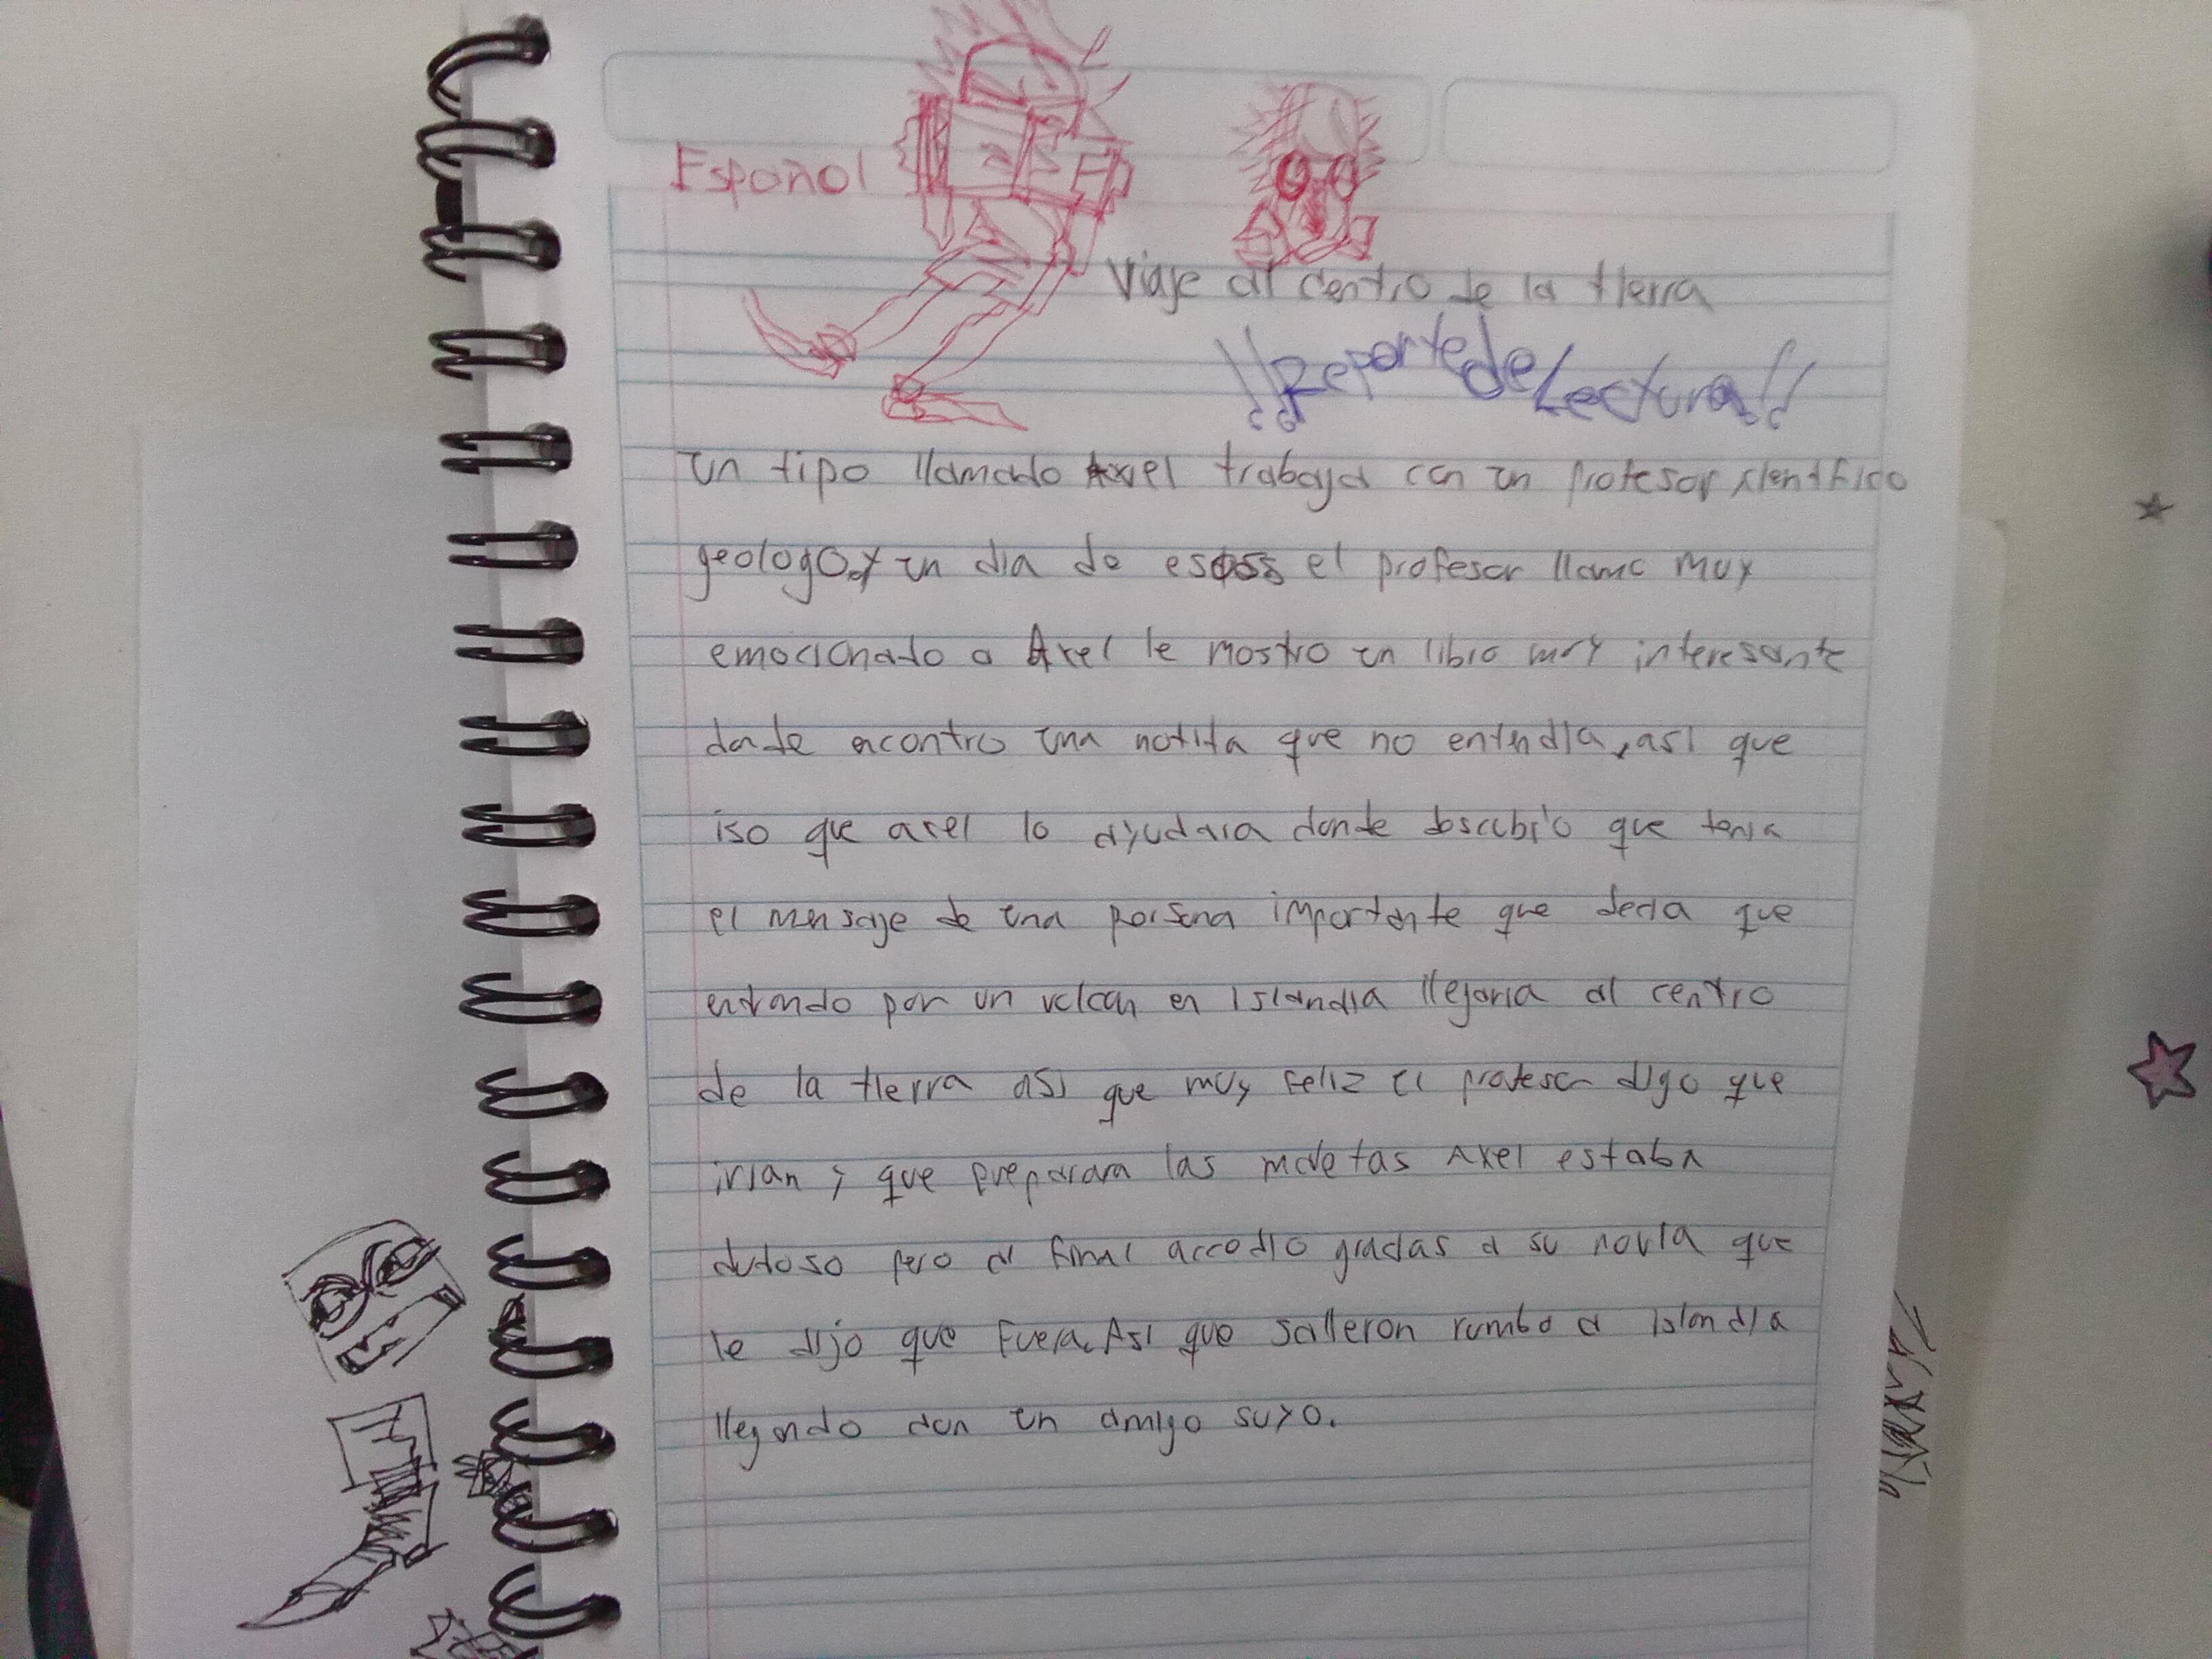 Español
Viaje al centro de la tierra
¡¡Reporte de Lectura!!
un tipo llamado Axel trabaja con un profesor cientifico
geologo y un dia de esos el profesor llamo muy
emocionado a Axel le mostro un libro muy interesante
donde encontro una notita que no entendia, asi que
iso que axel lo ayudara donde descubrio que tenia
el mensaje de una persona importante que decia que
entrando por un volcan en Islandia llegaria al centro
de la tierra asi que muy feliz el profesor digo que
irian y que preparara las maletas Axel estaba
dudoso pero al final accedio gracias a su novia que
le dijo que fuera. Asi que salieron rumbo a Islandia
llegando con un amigo suyo.